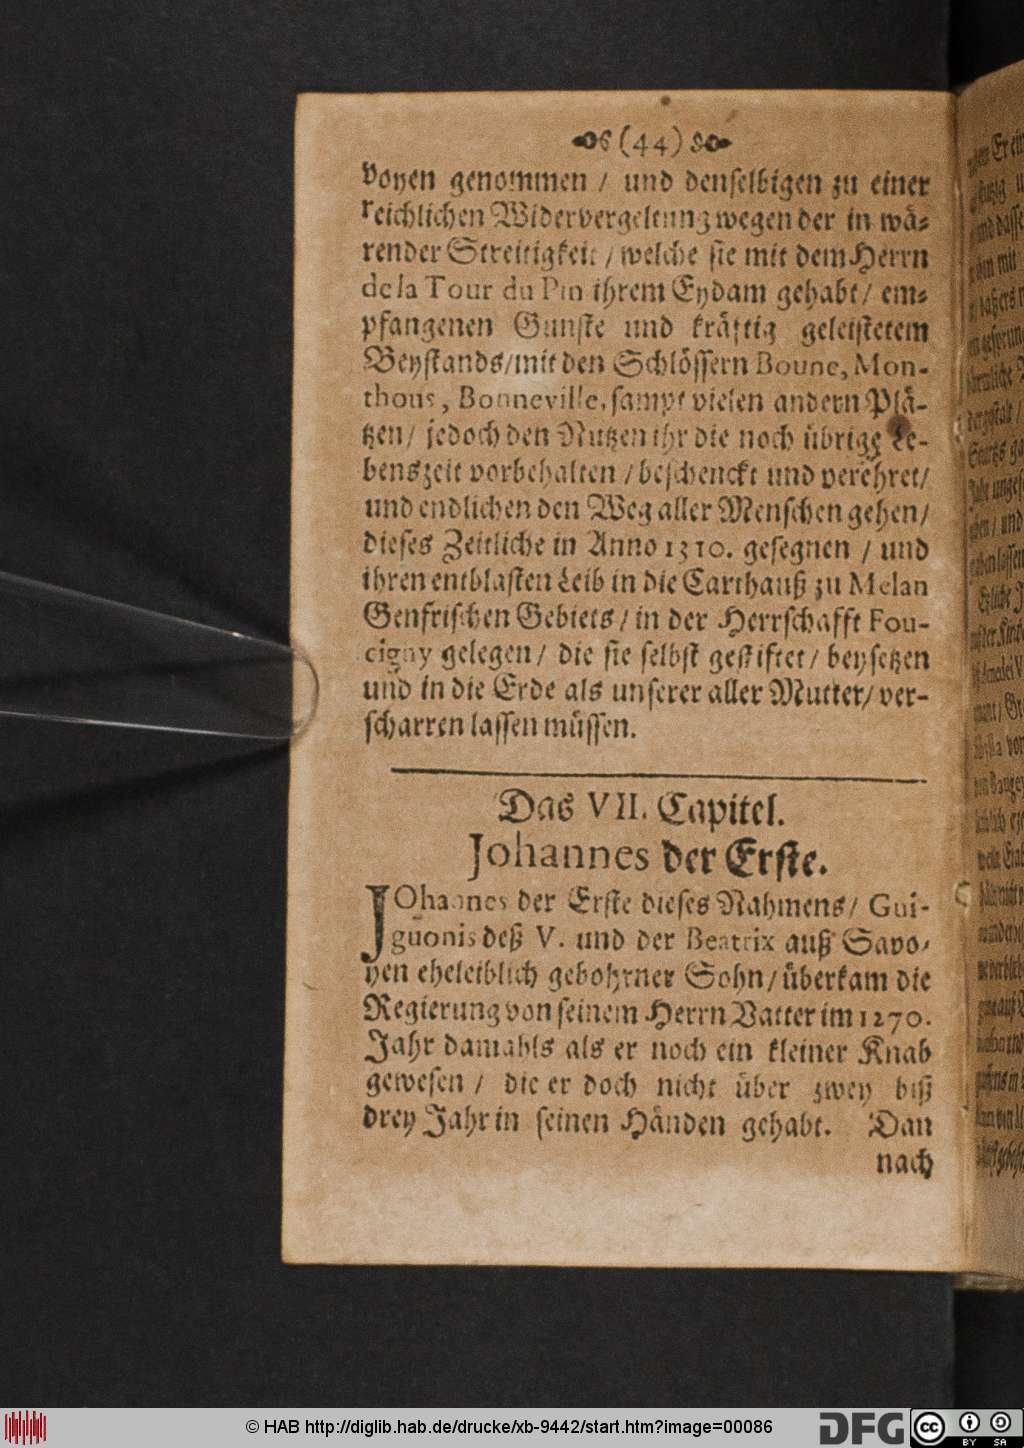 (44)
voyen genommen / und denselbigen zu einer
reichlichen Widervergeltung wegen der in wä-
render Streitigkeit / welche sie mit dem Herrn
de la Tour du Pin ihrem Eydam gehabt / em-
pfangenen Gunste und kräfftig geleistetem
Beystands / mit den Schlössern Boune, Mon-
thous, Bonneville, sampt vielen andern Plä-
tzen / jedoch den Nutzen ihr die noch übrige Le-
benszeit vorbehalten / beschenckt und verehret /
und endlichen den Weg aller Menschen gehen /
dieses Zeitliche in Anno 1310. gesegnen / und
ihren entblasten Leib in die Carthauß zu Melan
Genfrischen Gebiets / in der Herrschafft Fou-
cigny gelegen / die sie selbst gestiftet / beysetzen
und in die Erde als unserer aller Mutter / ver-
scharren lassen müssen.
Das VII. Capitel.
Johannes der Erste.
JOhannes der Erste dieses Nahmens / Gui-
guonis deß V. und der Beatrix auß Savo-
yen eheleiblich gebohrner Sohn / überkam die
Regierung von seinem Herrn Vatter im 1270.
Jahr damahls als er noch ein kleiner Knab
gewesen / die er doch nicht über zwey biß
drey Jahr in seinen Händen gehabt. Dan
nach
© HAB http://diglib.hab.de/drucke/xb-9442/start.htm?image=00086
DFG
cc BY SA